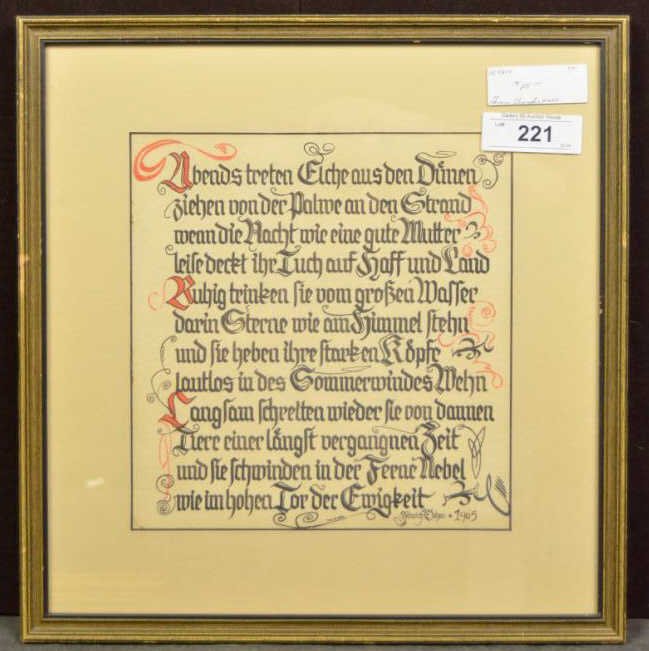 221
Abends treten Elche aus den Dünen
ziehen von der Palwe an den Strand
wenn die Nacht wie eine gute Mutter
leise deckt ihr Tuch auf Haff und Land
Ruhig trinken sie vom großen Wasser
darin Sterne wie am Himmel stehn
und sie heben ihre starken Köpfe
lautlos in des Sommerwindes Wehn
Langsam schreiten wieder sie von dannen
Tiere einer längst vergangnen Zeit
und sie schwinden in der Ferne Nebel
wie im hohen Tor der Ewigkeit
1965